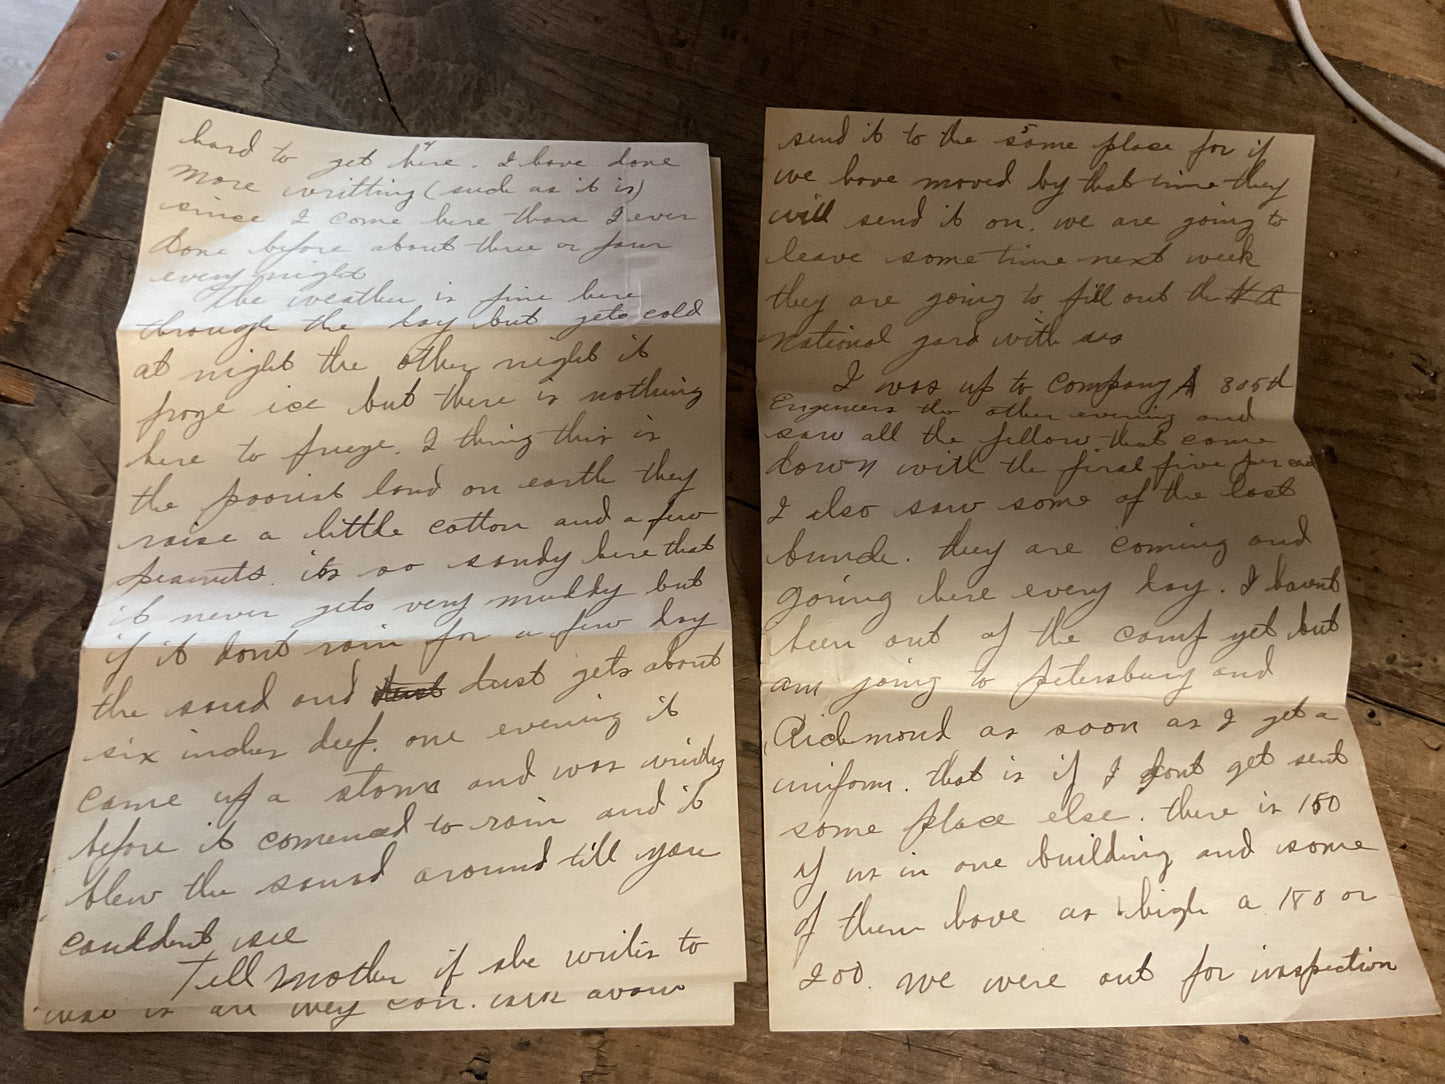 hard to get here. I have done
more writting (such as it is)
since I come here than I ever
done before about three or four
every night
The weather is fine here
through the day but gets cold
at night the other night it
froze ice but there is nothing
here to freeze. I thing this is
the poorist land on earth they
raise a little cotton and a few
peanuts. its so sandy here that
it never gets very muddy but
if it dont rain for a few day
the sand and dust gets about
six inches deep. one evening it
came up a storm and was windy
before it comenced to rain and it
blew the sand around till you
couldent see
Tell Mother if she writes to
send it to the same place for if
we have moved by that time they
will send it on. we are going to
leave some time next week
they are going to fill out the N A
National gard with us
I was up to Company A 305th
Engineers the other evening and
saw all the fellow that come
down with the first five per cent
I also saw some of the last
bunch. they are coming and
going here every day. I havent
been out of the camp yet but
am going to Petersburg and
Richmond as soon as I get a
uniform. that is if I dont get sent
some place else. there is 150
of us in one building and some
of them have as high a 180 or
200. we were out for inspection